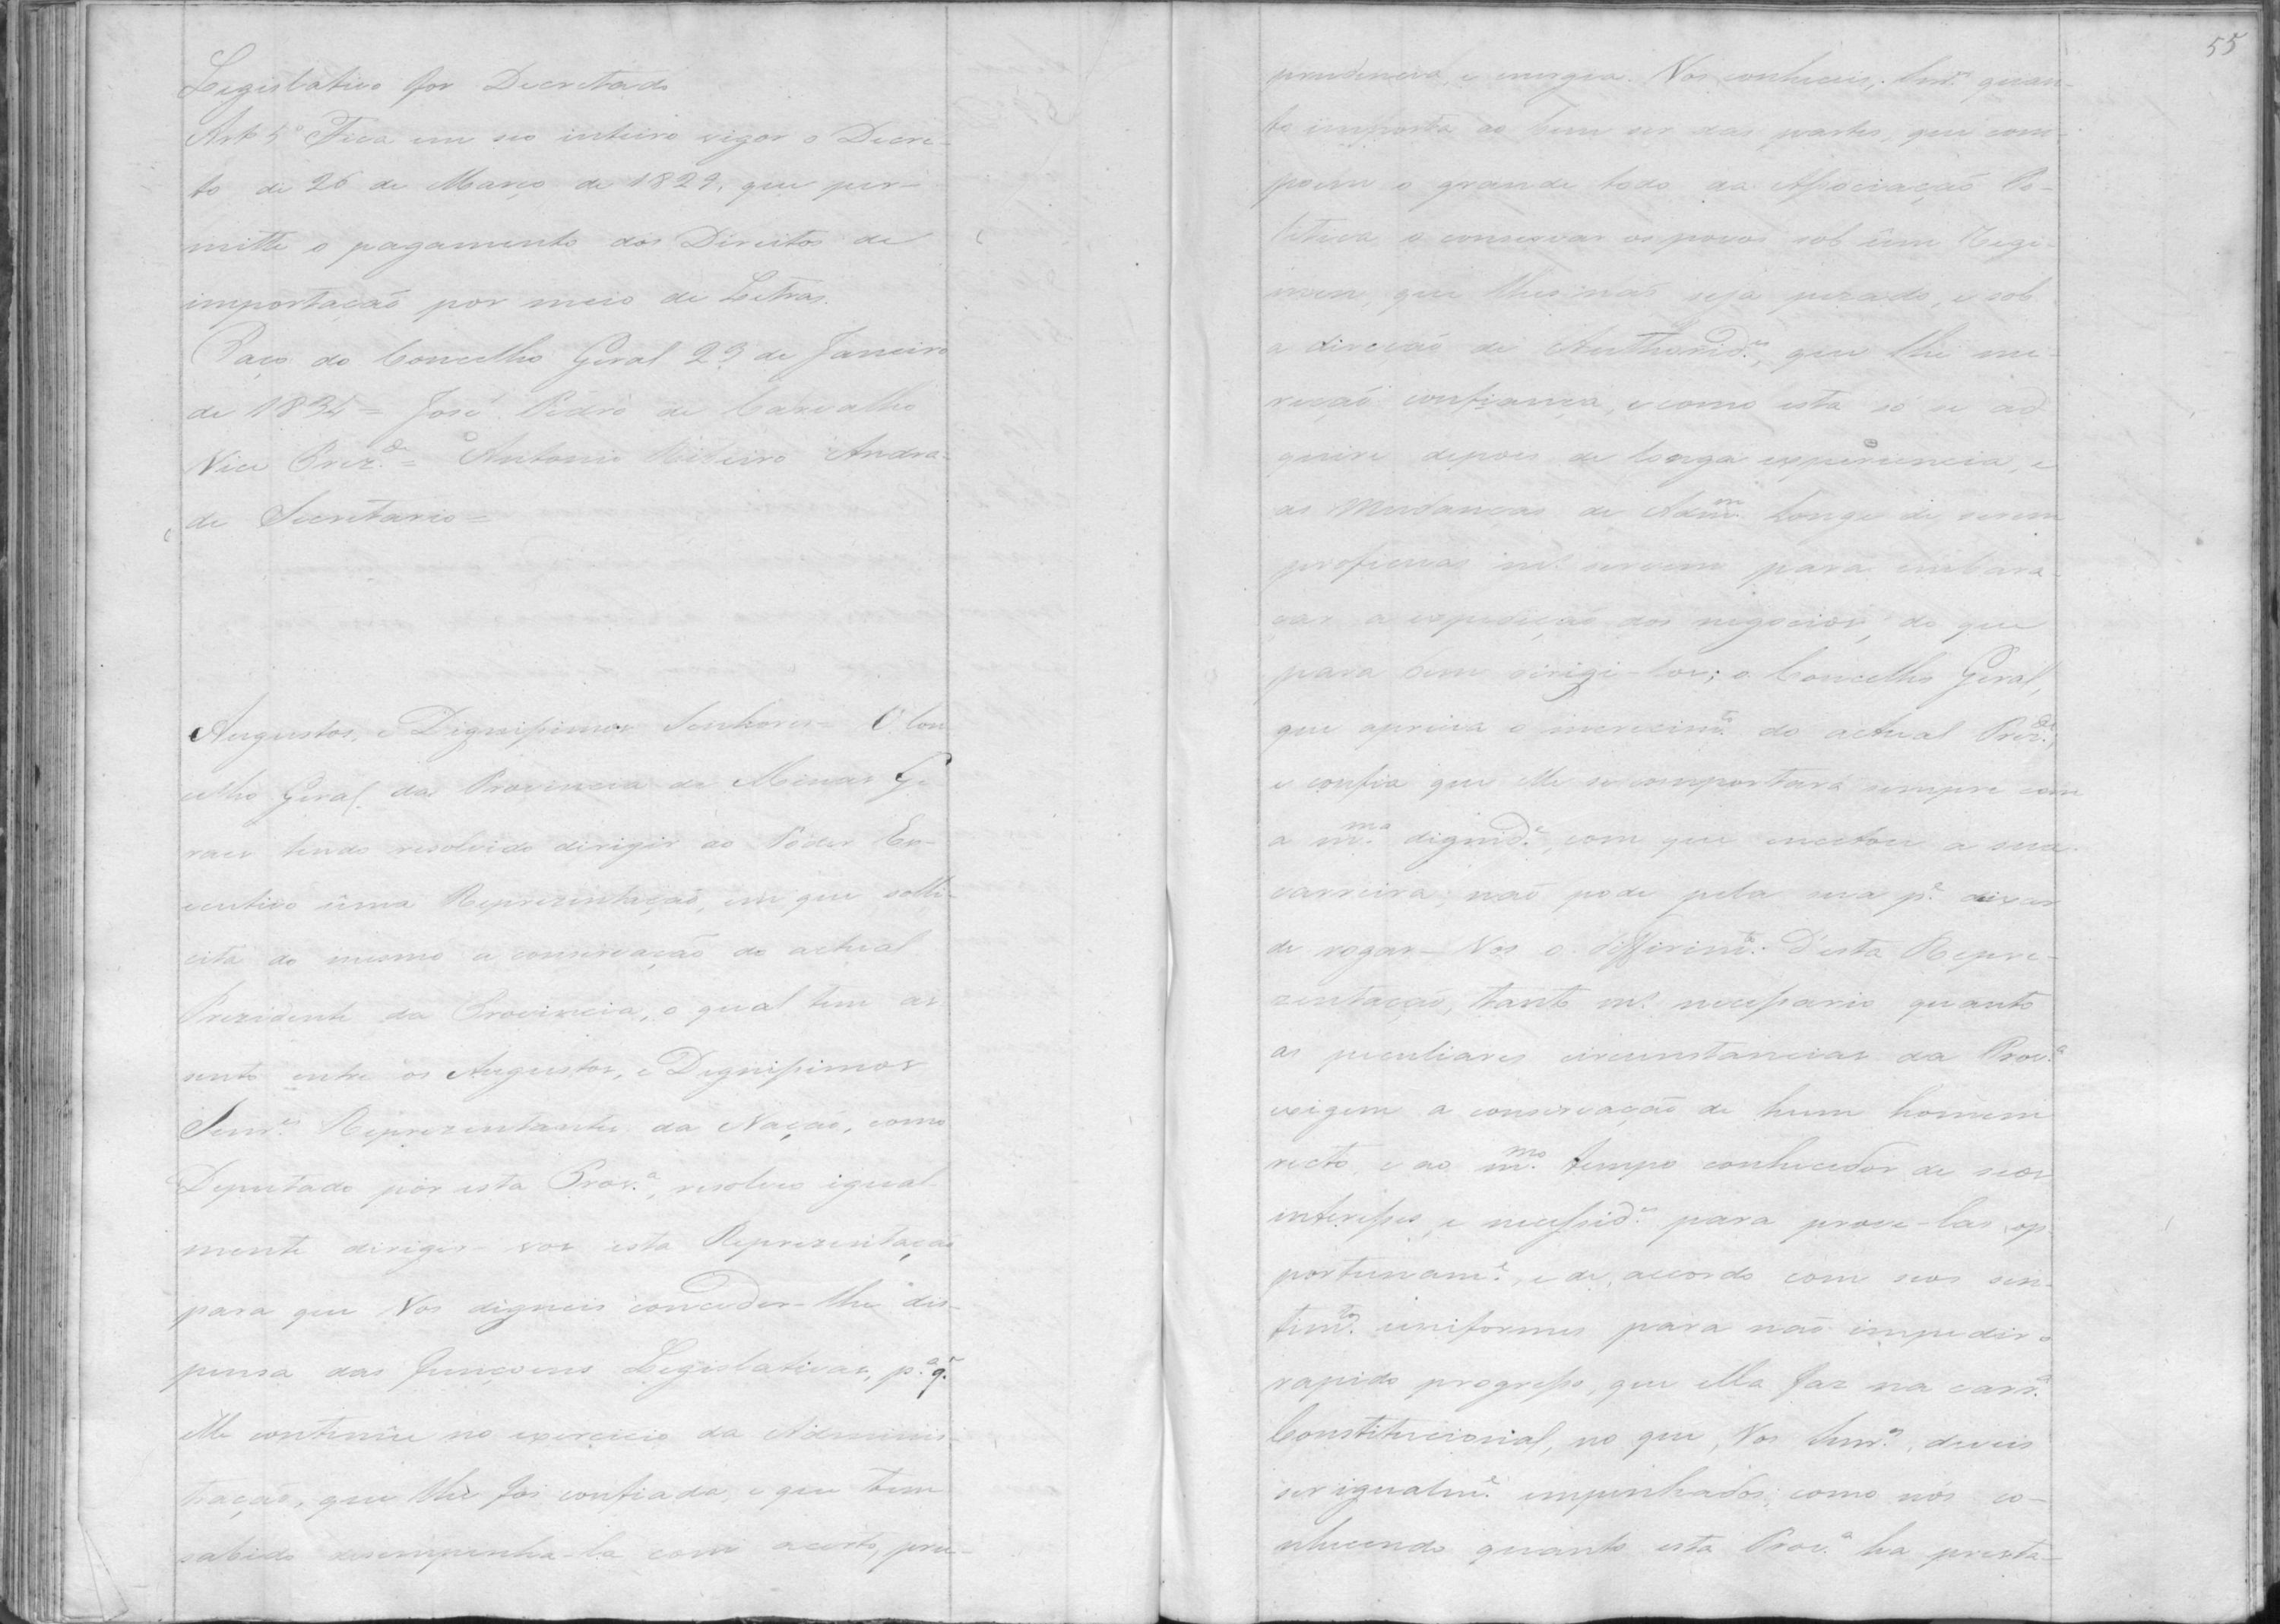 Legislativo for Decretado
Art 5º Fica em seo inteiro vigor o Decre-
to de 26 de Março de 1829, que per-
mitte o pagamento dos Direitos de
importação por meio de Letras.
Paço do Concelho Geral 23 de Janeiro
de 1834 = José Pedro de Carvalho
Vice Prez.de = Antonio Ribeiro Andra-
de Secretario =
Augustos, e Dignissimos Senhores = O Con
celho Geral da Provincia de Minas Ge
raes tendo resolvido dirigir ao Poder Ex-
ecutivo uma Reprezentação, em que solli-
cita do mesmo a conservação do actual
Prezidente da Provincia, o qual tem as-
sento entre os Augustos, e Dignissimos
Senr.es Reprezentantes da Nação, como
Deputado por esta Prov.a, resolveo igual
mente dirigir-vos esta Reprezentação
para que Vos digneis conceder-lhe dis-
pensa das funçoens Legislativas, p.a q.
elle continúe no exercicio da Adminis-
tração, que lhe foi confiada, e que tem
sabido desempenha-la com acerto, pru-
55
prudencia, e energia. Vos conheceis, Snr.es quan-
to importa ao bem ser das partes, que com-
poem o grande todo da Associação Po-
litica o conservar os povos sob um Regi-
men, que lhes não seja pezado, e sob
a direcção de Authorid.es, que lhe me-
reção confiança, e como esta só se ad
quire depois de longa experiencia, e
as mudanças de Adm.m longe de serem
proficuas m.s servem para embara-
çar a expedição dos negocios, do que
para bem dirigi-los; o Concelho Geral,
que aprecia o merecim.to do actual Prez.de,
e confia que elle se comportará sempre com
a m.ma dignid.e, com que encetou a sua
carreira, não pode pela sua p.e deixar
de rogar-Vos o differim.to d'esta Repre-
zentação, tanto m.s necessario quanto
as peculiares circunstancias da Prov.a
exigem a conservação de hum homem
recto, e ao m.mo tempo conhecedor de seos
interesses, e necessid.es para prove-las op-
portunam.e, e de accordo com seos sen-
tim.tos uniformes para não impedir o
rapido progresso, que ella faz na carr.a
Constitucional, no que, Vos Snr.es, deveis
ser igualm.e empenhados, como nós co-
nhecendo quanto esta Prov.a ha presta-